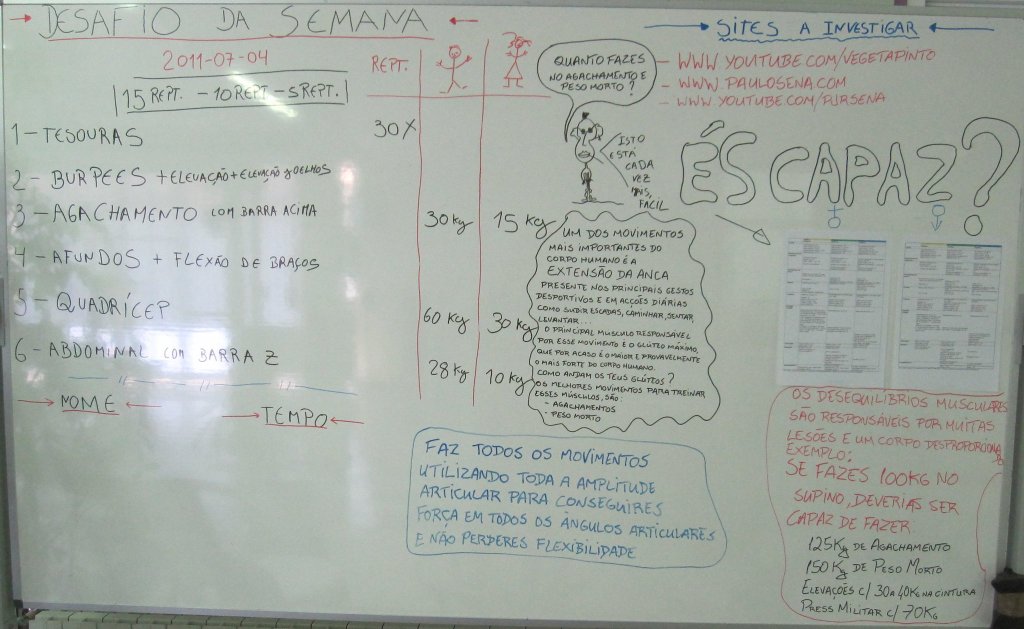 DESAFIO DA SEMANA
2011-07-04
15 REPT. - 10 REPT - 5 REPT.
REPT.
1 - TESOURAS
30X
2 - BURPEES + ELEVAÇÃO + ELEVAÇÃO JOELHOS
3 - AGACHAMENTO COM BARRA ACIMA
30 kg
15 kg
4 - AFUNDOS + FLEXÃO DE BRAÇOS
5 - QUADRÍCEP
60 kg
30 kg
6 - ABDOMINAL COM BARRA Z
28 kg
10 kg
NOME
TEMPO
QUANTO FAZES
NO AGACHAMENTO E
PESO MORTO?
ISTO
ESTÁ
CADA
VEZ
MAIS,
FACIL
UM DOS MOVIMENTOS
MAIS IMPORTANTES DO
CORPO HUMANO É A
EXTENSÃO DA ANCA
PRESENTE NOS PRINCIPAIS GESTOS
DESPORTIVOS E EM ACÇÕES DIÁRIAS
COMO SUBIR ESCADAS, CAMINHAR, SENTAR,
LEVANTAR...
O PRINCIPAL MUSCULO RESPONSÁVEL
POR ESSE MOVIMENTO É O GLÚTEO MÁXIMO,
QUE POR ACASO É O MAIOR E PROVAVELMENTE
O MAIS FORTE DO CORPO HUMANO.
COMO ANDAM OS TEUS GLÚTEOS?
OS MELHORES MOVIMENTOS PARA TREINAR
ESSES MÚSCULOS, SÃO:
- AGACHAMENTOS
- PESO MORTO
FAZ TODOS OS MOVIMENTOS
UTILIZANDO TODA A AMPLITUDE
ARTICULAR PARA CONSEGUIRES
FORÇA EM TODOS OS ÂNGULOS ARTICULARES
E NÃO PERDERES FLEXIBILIDADE
SITES A INVESTIGAR
- WWW.YOUTUBE.COM/VEGETAPINTO
- WWW.PAULOSENA.COM
- WWW.YOUTUBE.COM/PJRSENA
ÉS CAPAZ?
OS DESEQUILÍBRIOS MUSCULARES
SÃO RESPONSÁVEIS POR MUITAS
LESÕES E UM CORPO DESPROPORCIONADO
EXEMPLO:
SE FAZES 100KG NO
SUPINO, DEVERIAS SER
CAPAZ DE FAZER:
125Kg DE AGACHAMENTO
150Kg DE PESO MORTO
ELEVAÇÕES C/ 30 A 40KG NA CINTURA
PRESS MILITAR C/ 70KG